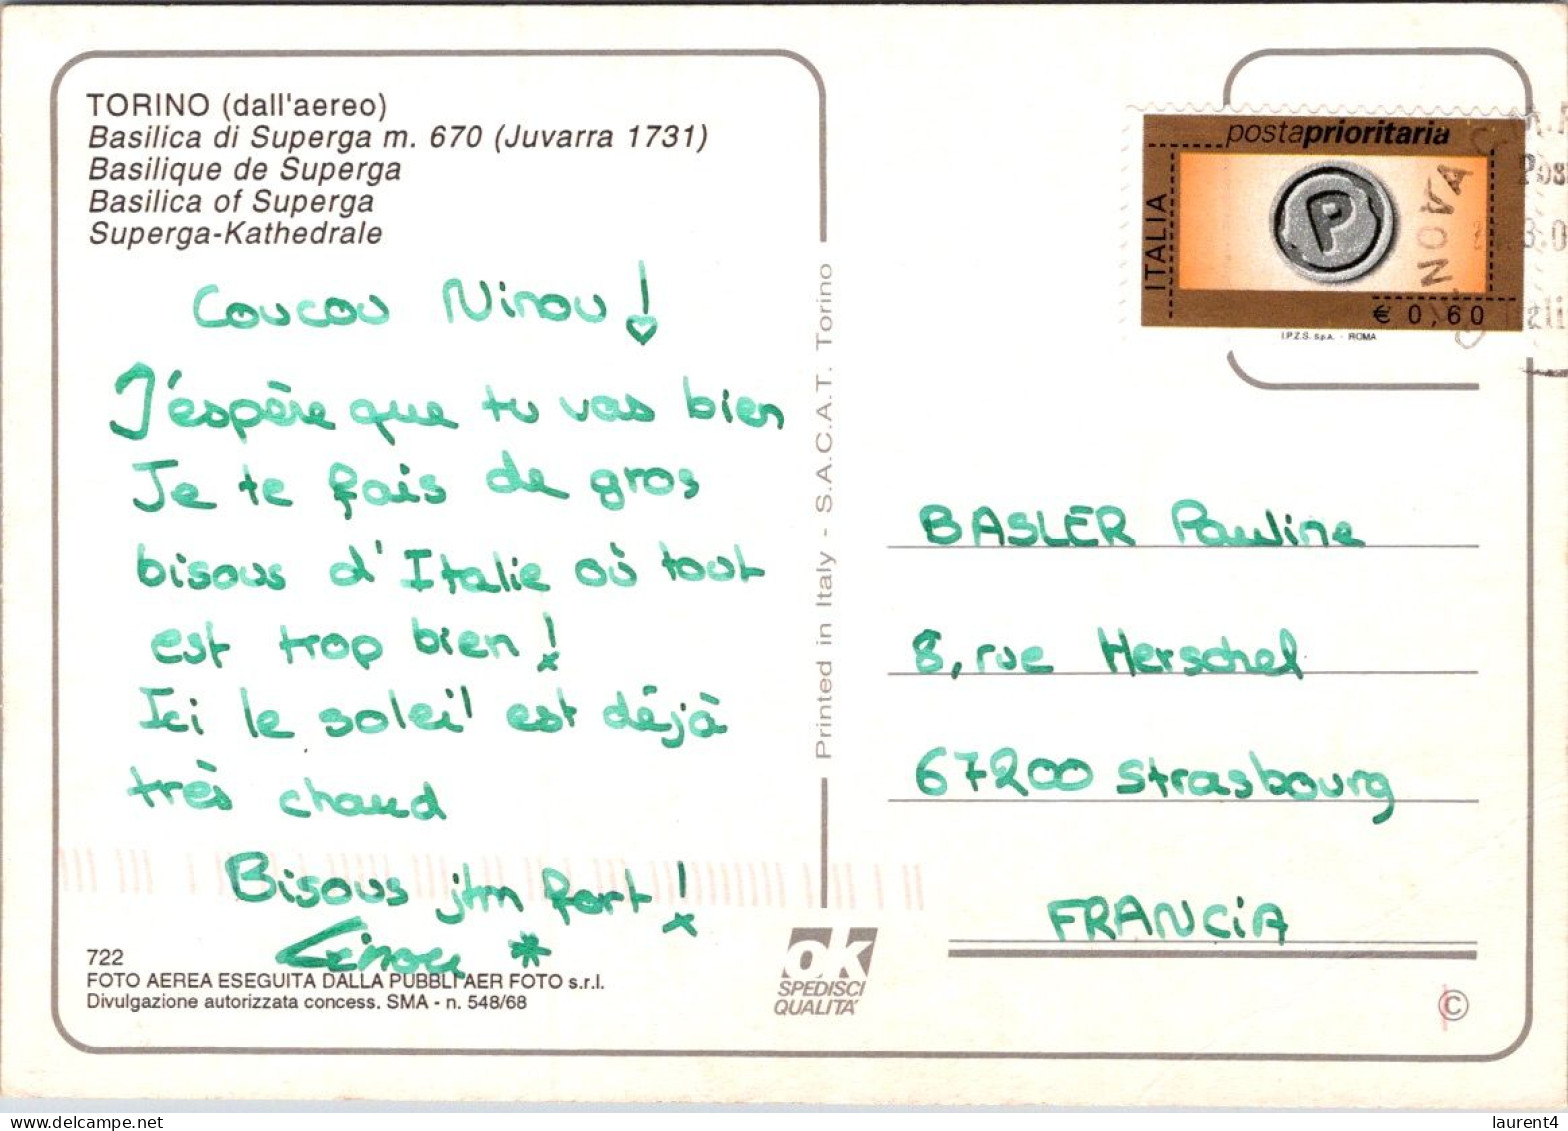 TORINO (dall'aereo)
Basilica di Superga m. 670 (Juvarra 1731)
Basilique de Superga
Basilica of Superga
Superga-Kathedrale
Coucou Ninou !
J'espère que tu vas bien
Je te fais de gros
bisous d'Italie où tout
est trop bien !
Ici le soleil est déjà
très chaud
Bisous jtm fort !
722
FOTO AEREA ESEGUITA DALLA PUBBLI AER FOTO s.r.l.
Divulgazione autorizzata concess. SMA - n. 548/68
Printed in Italy - S.A.C.A.T. Torino
ok
SPEDISCI
QUALITA'
postaprioritaria
ITALIA
P
€ 0,60
I.P.Z.S. S.p.A. - ROMA
BASLER Pauline
8, rue Herschel
67200 Strasbourg
FRANCiA
©
laurent4